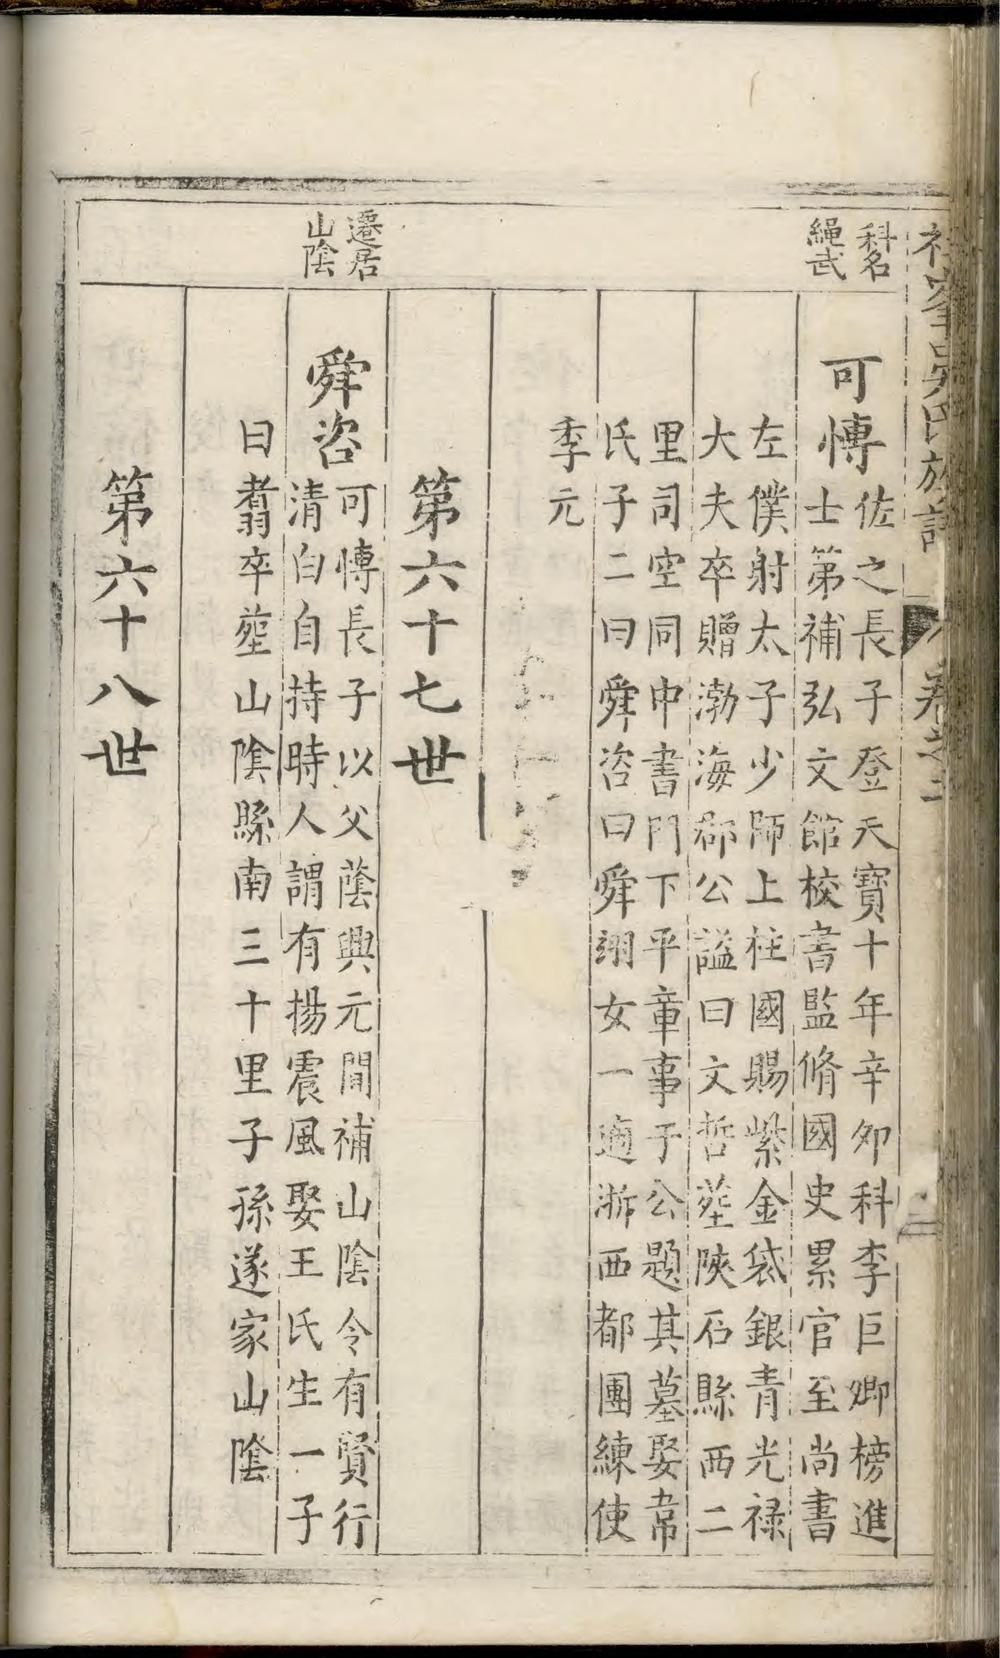 吳氏族譜 卷之二
科名
繩武
可愽
佐之長子登天寶十年辛夘科李巨卿榜進
士第補弘文館校書監脩國史累官至尚書
左僕射太子少師上柱國賜紫金袋銀青光禄
大夫卒贈渤海郡公謚曰文哲塟陝石縣西二
里司空同中書門下平章事于公題其墓娶韋
氏子二曰舜咨曰舜翊女一適浙西都團練使
季元
第六十七世
遷居
山陰
舜咨
可愽長子以父蔭興元間補山陰令有賢行
清白自持時人謂有揚震風娶王氏生一子
曰翥卒塟山陰縣南三十里子孫遂家山陰
第六十八世